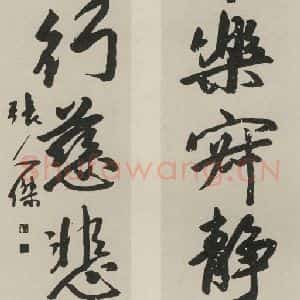 樂寂静
行慈悲
張人傑
Shufawang.CN